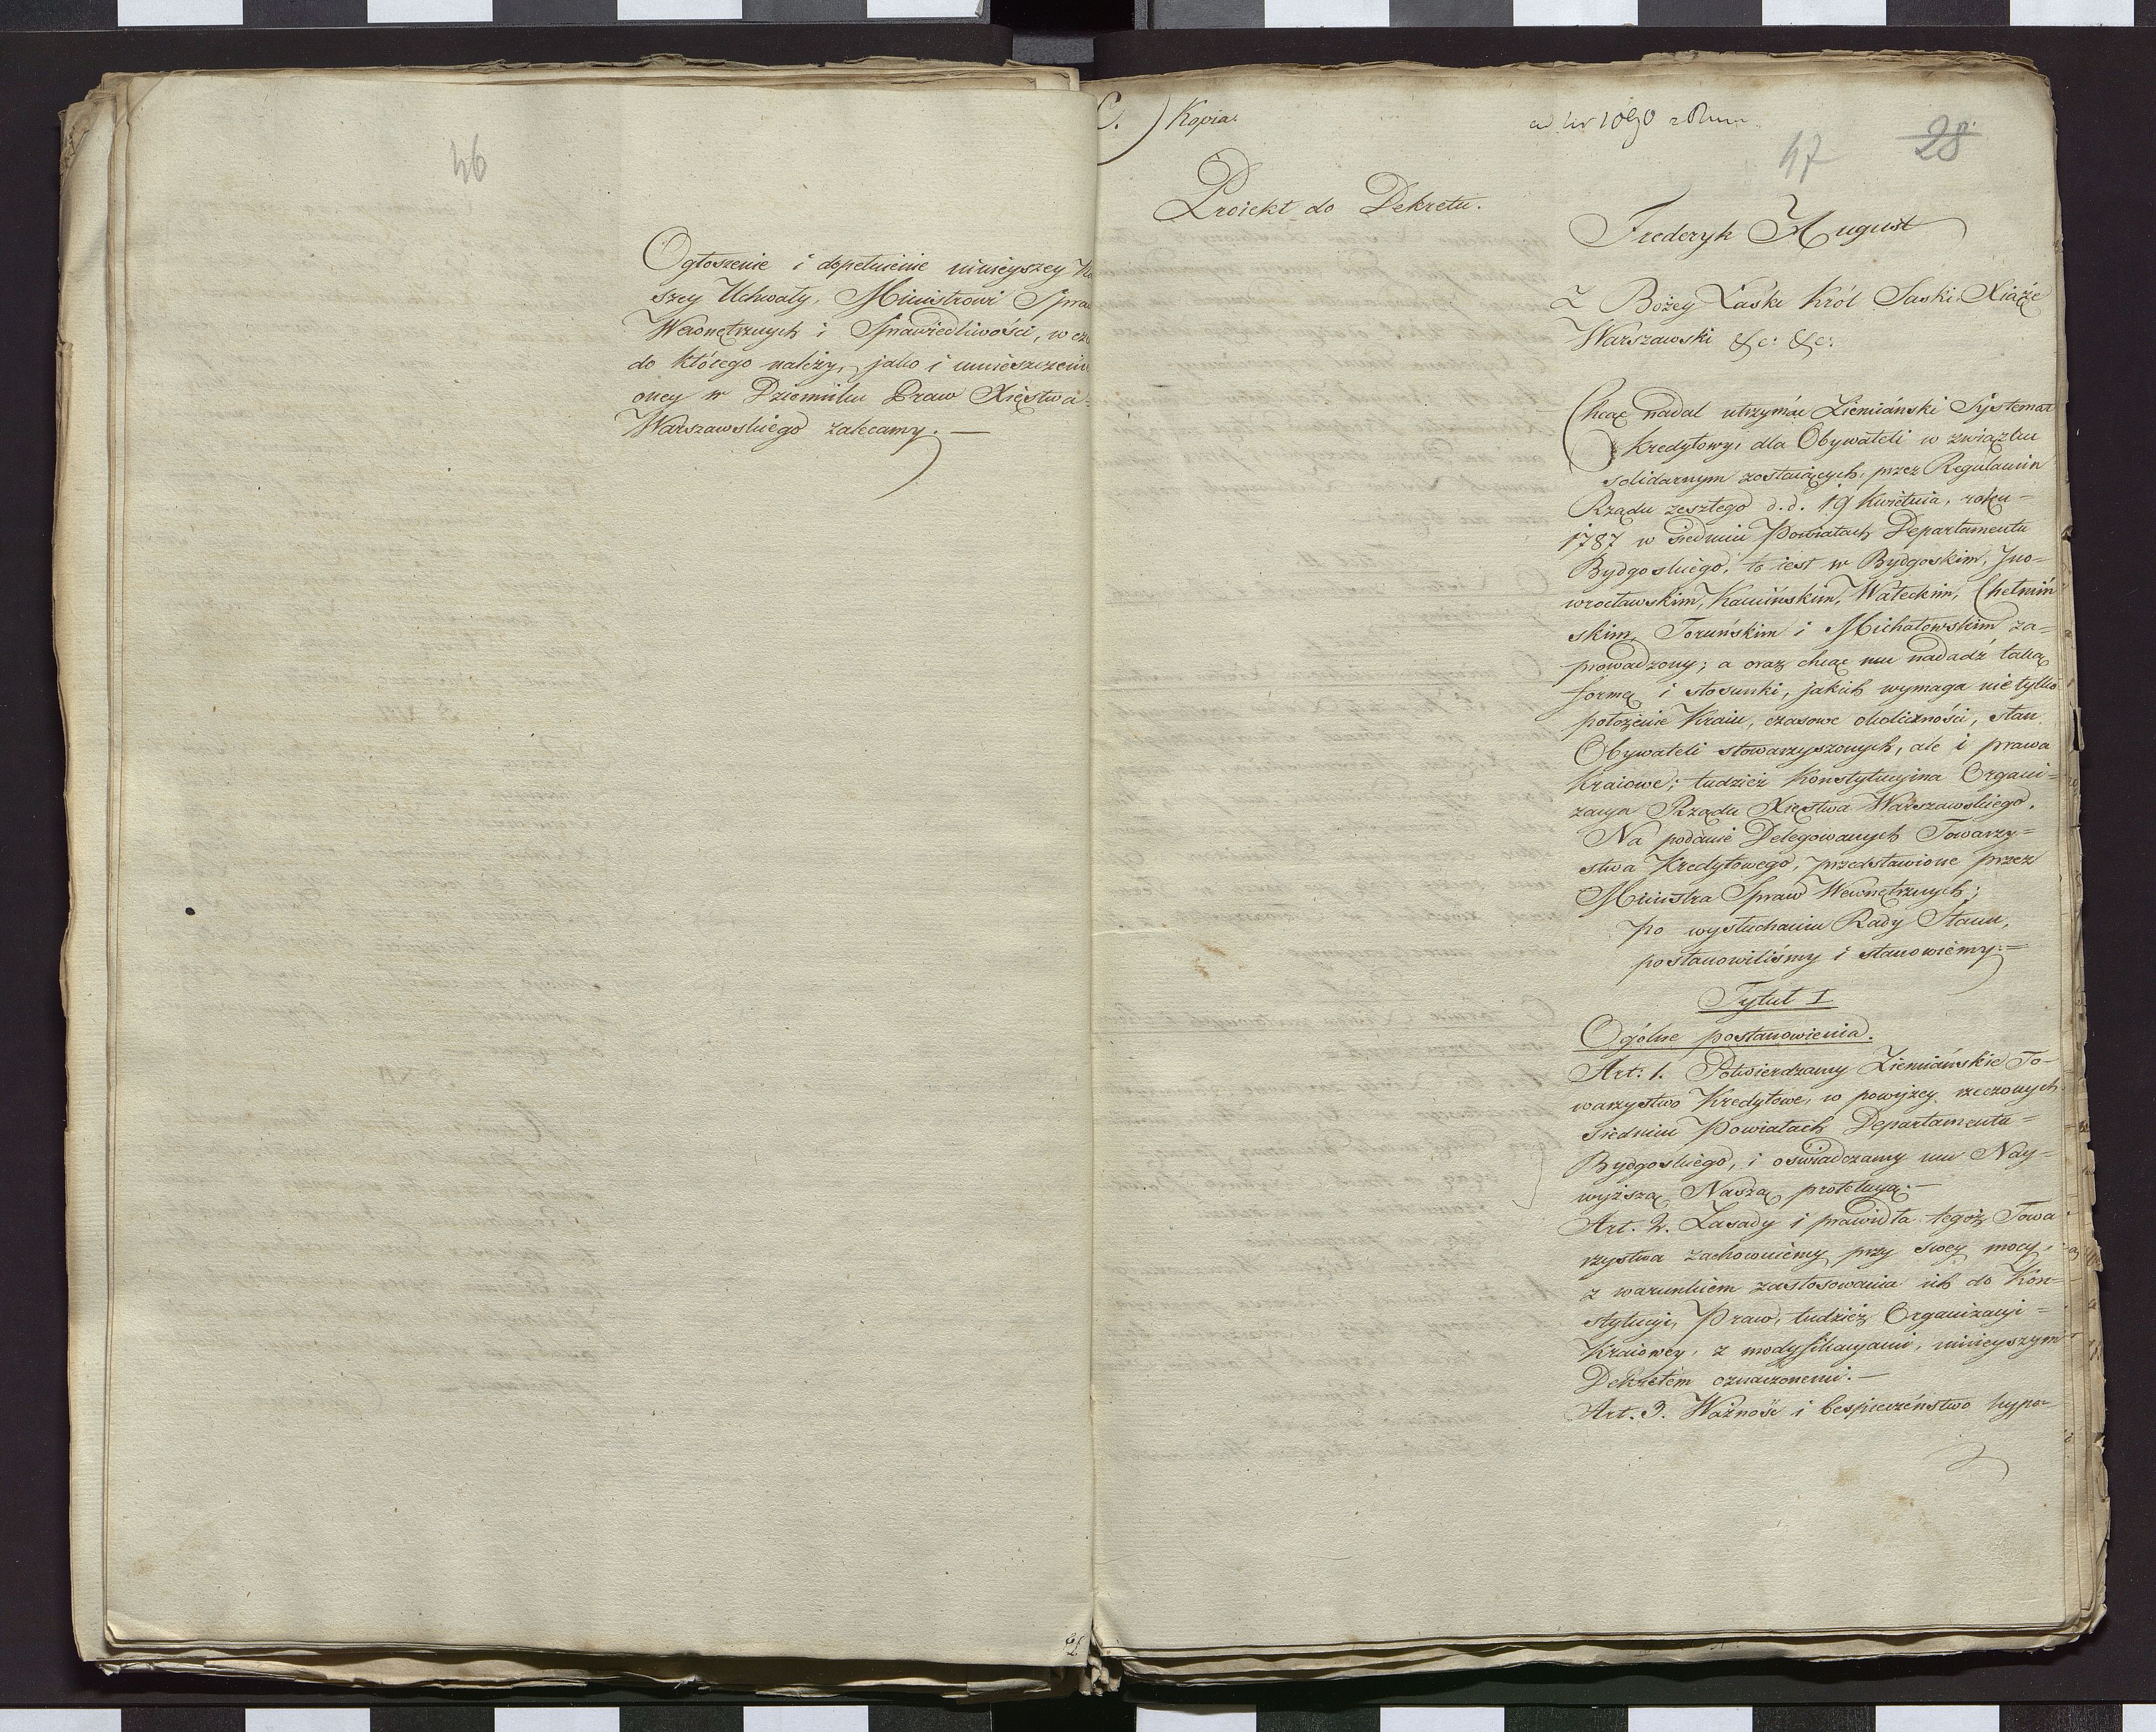 46
Ogłoszenie i dopełnienie ninieyszey Na
szey Uchwały, Ministrowi Spra
Wewnętrznych i Sprawiedliwości, w cze
do którego należy, jako i umieszczenie
oney w Dzienniku Praw Xięstwa
Warszawskiego zalecamy. —
C.) Kopia.
ad Nr 1090
47 28
Proiekt do Dekretu.
Frederyk August
Z Bożey Łaski Król Saski Xiąże
Warszawski &c: &c:
Chcąc nadal utrzymać Ziemiański Systemat
Kredytowy, dla Obywateli w związku
solidarnym zostaiących, przez Regulamin
Rządu zeszłego d.d. 19 Kwietnia, roku=
1787 w siedmiu Powiatach Departamentu
Bydgoskiego, to iest w Bydgoskim, Jno=
wrocławskim, Kamińskim, Wałeckim, Chełmiń
skim, Toruńskim i Michałowskim za=
prowadzony; a oraz chcąc mu nadadź taką
formę i stosunki, jakich wymaga nietylko
położenie Kraiu, czasowe okoliczności, stan
Obywateli stowarzyszonych, ale i prawa
Kraiowe; tudzież Konstytucyina Organi=
zacya Rządu Xięstwa Warszawskiego.
Na podanie Delegowanych Towarzy=
stwa Kredytowego, przedstawione przez
Ministra Spraw Wewnętrznych;
po wysłuchaniu Rady Stanu,
postanowiliśmy i stanowiemy:=
Tytuł I
Ogólne postanowienia.
Art: 1. Potwierdzamy Ziemiańskie To-
warzystwo Kredytowe, w powyżey rzeczonych
siedmiu Powiatach Departamentu=
Bydgoskiego, i oświadczamy mu Nay=
wyższą Naszą protekcyą.—
Art. 2. Zasady i prawidła tegoż Towa
rzystwa zachowuiemy przy swey mocy,
z warunkiem zastosowania ich do Kon=
stytucyi, Praw, tudzież Organizacyi=
Kraiowey, z modyfikacyami, ninieyszym
Dekretem oznaczonemi.—
Art. 3. Ważność i bespieczeństwo hypo=